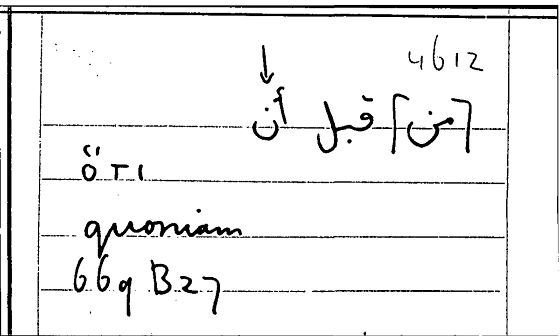 4612
↓
[من] قبل أن
ὅτι
quoniam
669 B27